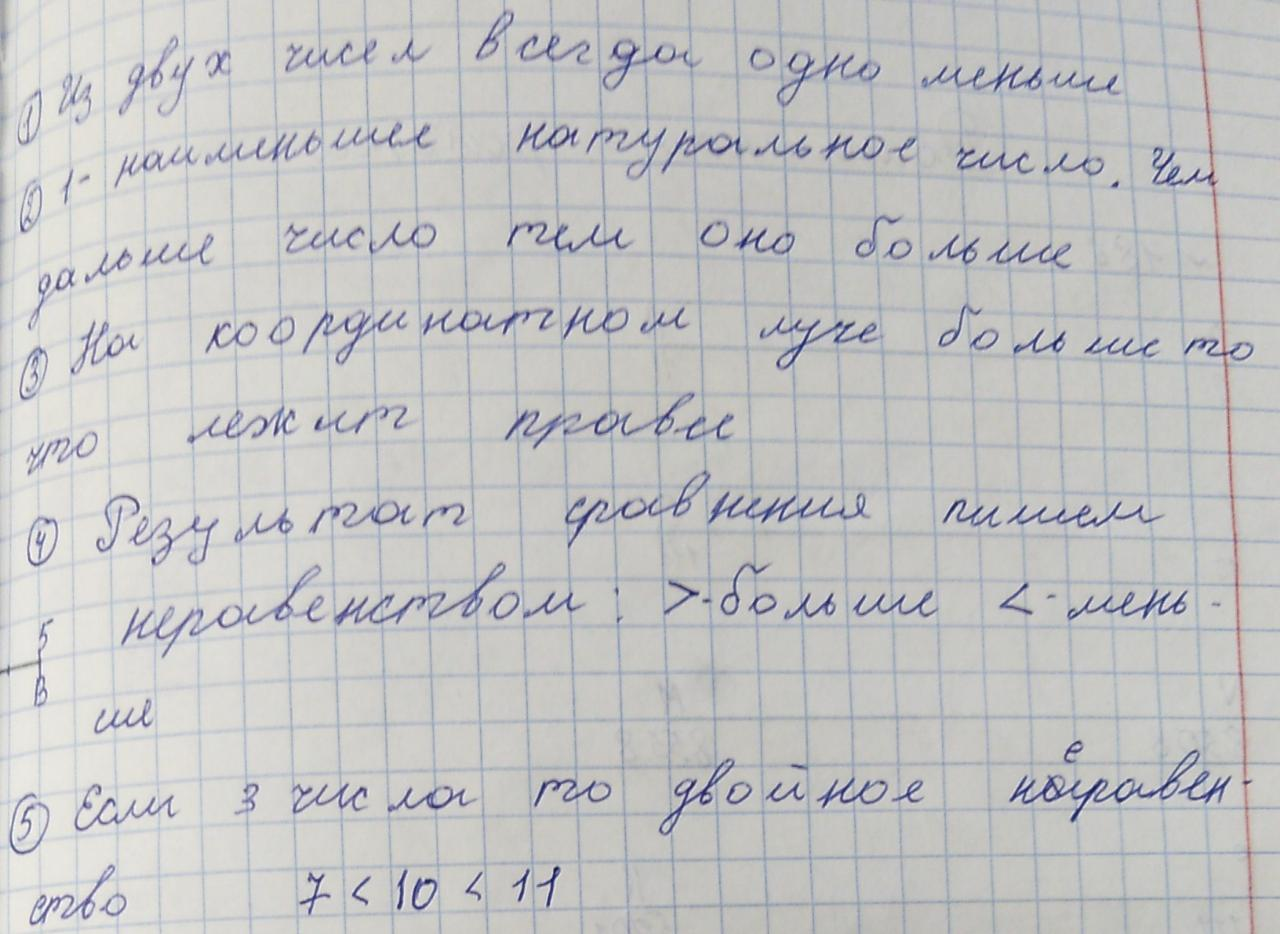 ① Из двух чисел всегда одно меньше
② 1 - наименьшее натуральное число. Чем
дальше число тем оно больше
③ На координатном луче больше то
что лежит правее
④ Результат сравнения пишем
неравенством: >-больше <-мень-
Б
В
ше
⑤ Если 3 числа то двойное неравен-
ство 7 < 10 < 11